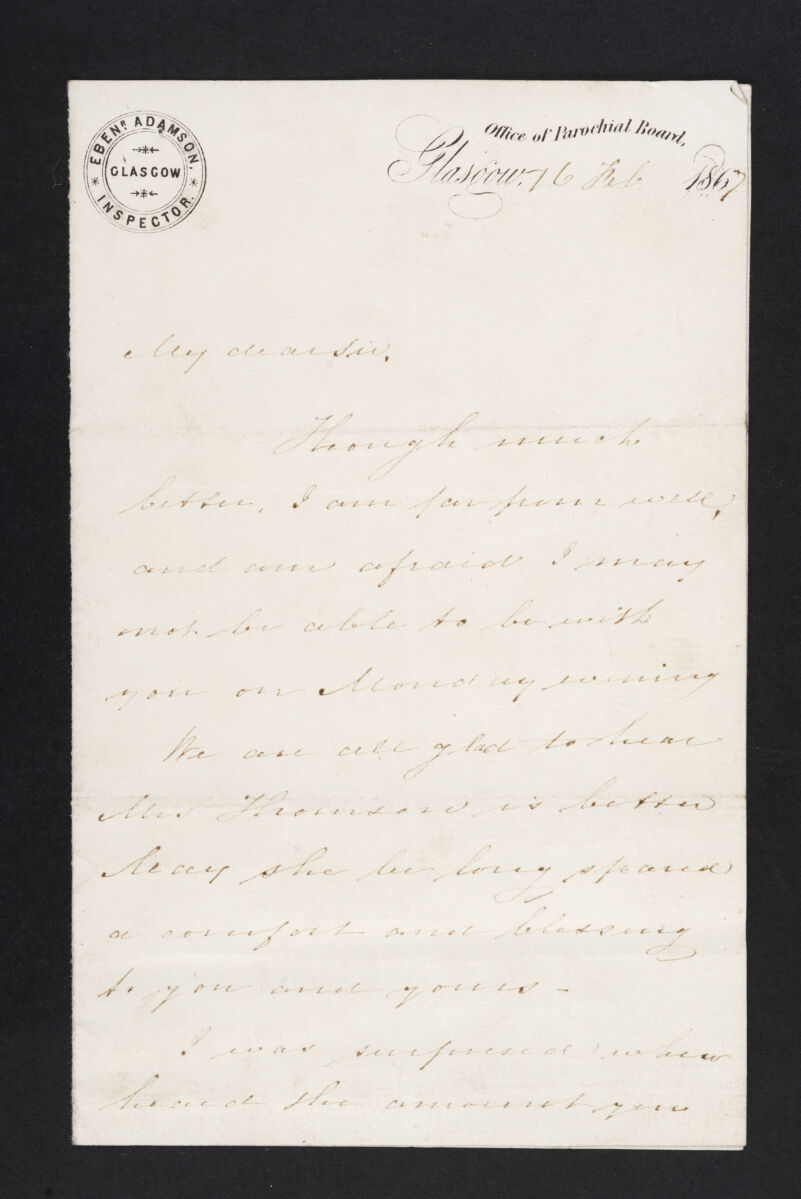 EBENR. ADAMSON,
GLASGOW
INSPECTOR.
Office of Parochial Board,
Glasgow, 16 Feb 1867
My dear Sir,
Though much
better, I am far from well,
and am afraid I may
not be able to be with
you on Monday evening
We are all glad to hear
Mrs Thomson is better
May she be long spared
a comfort and blessing
to you and yours -
I was surprised when
heard the amount you